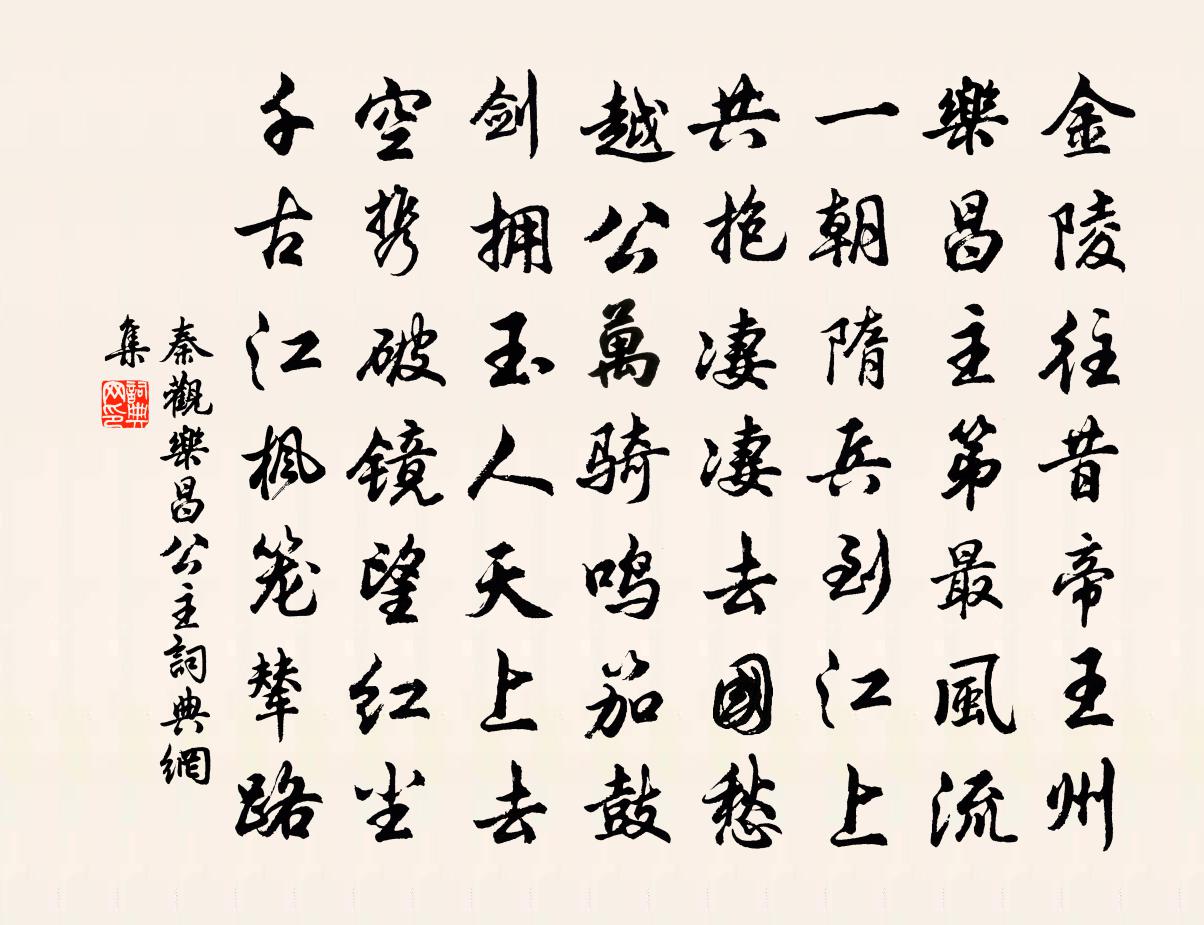 金陵往昔帝王州
樂昌主第最風流
一朝隋兵到江上
共抱凄凄去國愁
越公萬骑鸣笳鼓
剑拥玉人天上去
空携破镜望红尘
千古江枫笼辇路
秦觀樂昌公主詞典網
集
詞典
网印